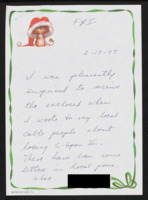 FYI
I was pleasantly
surprised to receive
the enclosed when
I wrote to my local
cable people about
losing C-Span II.
There have been some
letters in local paper
also.